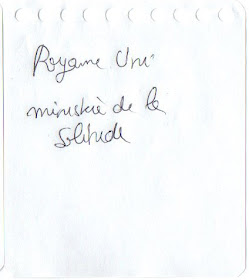 Royame Uni
ministère de la
solitude